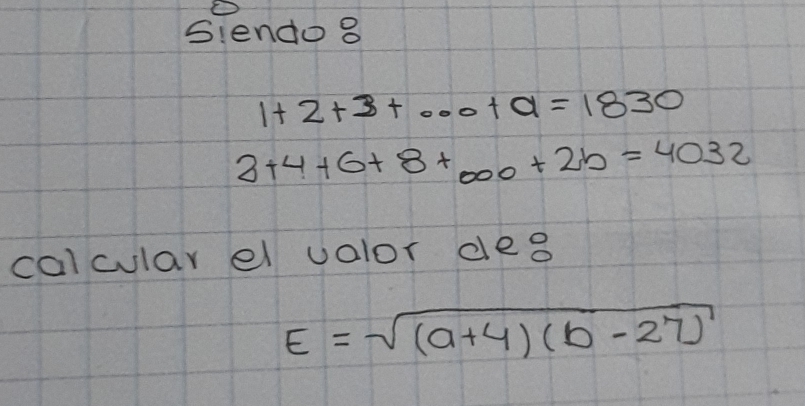 Siendo:
1+2+3+...+a=1830
2+4+6+8+...+2b=4032
calcular el valor de:
E = √(a+4)(b-27)